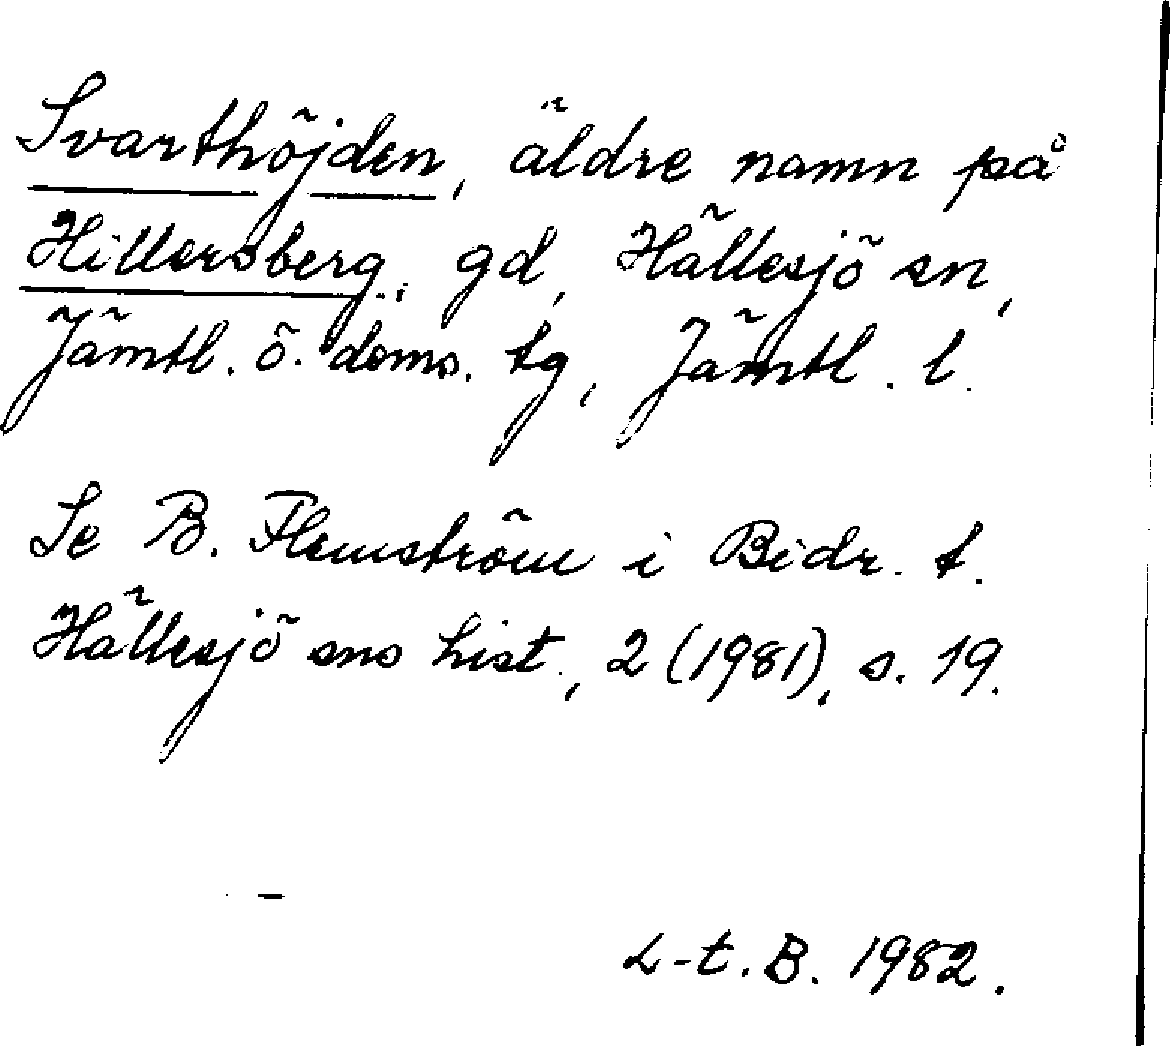 Svarthöjden, äldre namn på
Hillersberg, gd, Hällesjö sn,
Jämtl. ö. doms. tg, Jämtl. l.
Se B. Flemström i Bidr. t.
Hällesjö sns hist., 2 (1981), s. 19.
L-t. B. 1982.